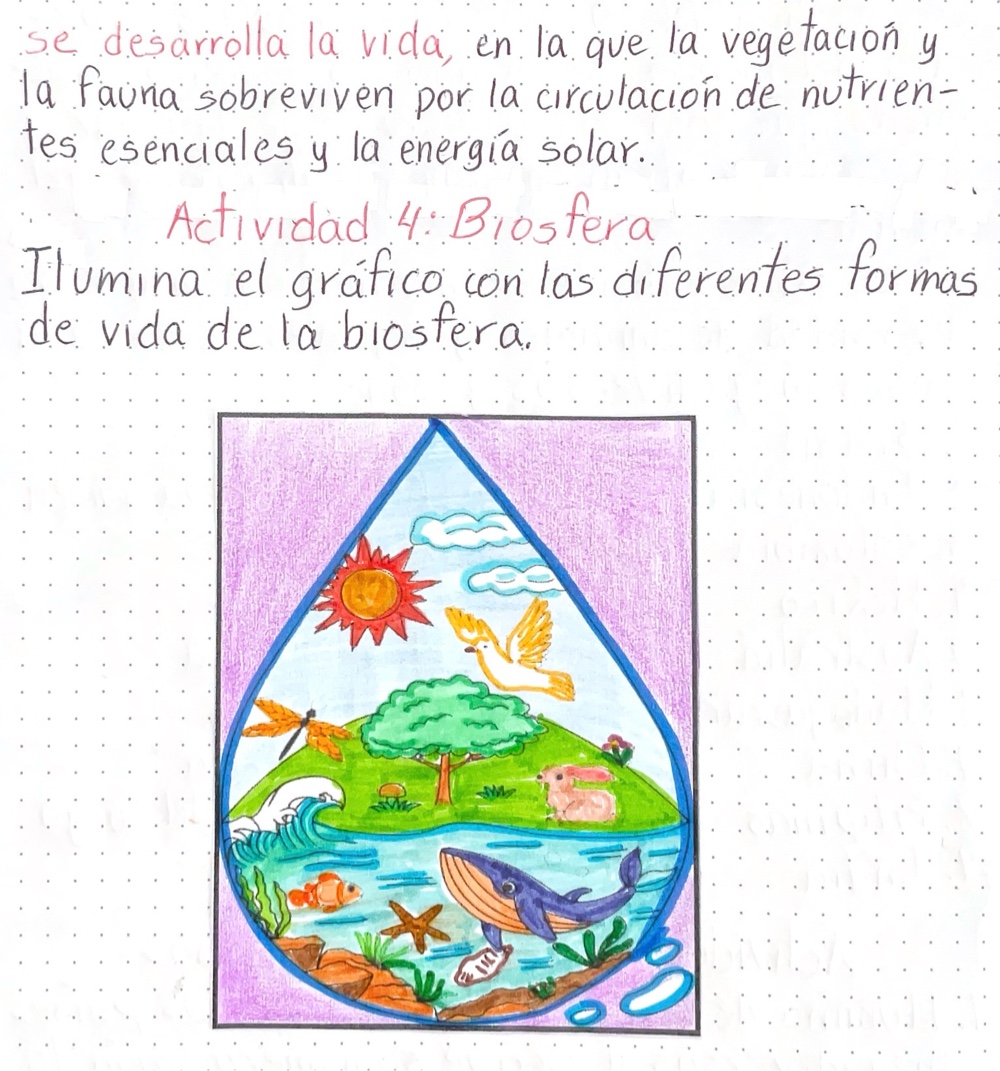 se desarrolla la vida, en la que la vegetación y
la fauna sobreviven por la circulación de nutrien-
tes esenciales y la energía solar.
Actividad 4: Biosfera
Ilumina el gráfico con las diferentes formas
de vida de la biosfera.